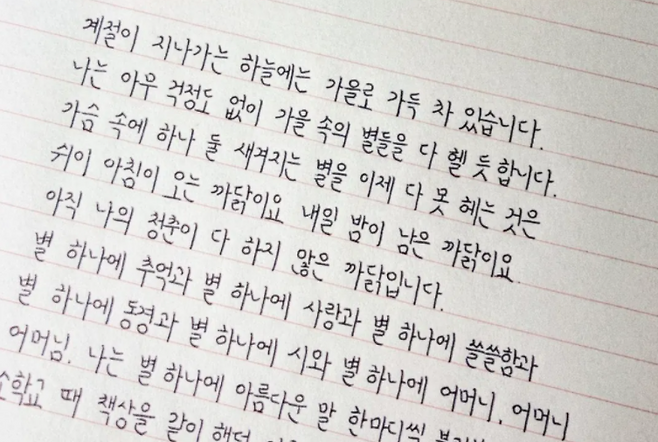 계절이 지나가는 하늘에는 가을로 가득 차 있습니다.
나는 아무 걱정도 없이 가을 속의 별들을 다 헬 듯 합니다.
가슴 속에 하나 둘 새겨지는 별을 이제 다 못 헤는 것은
쉬이 아침이 오는 까닭이요 내일 밤이 남은 까닭이요.
아직 나의 청춘이 다 하지 않은 까닭입니다.
별 하나에 추억과 별 하나에 사랑과 별 하나에 쓸쓸함과
별 하나에 동경과 별 하나에 시와 별 하나에 어머니, 어머니
어머님, 나는 별 하나에 아름다운 말 한마디씩
소학교 때 책상을 같이 했던